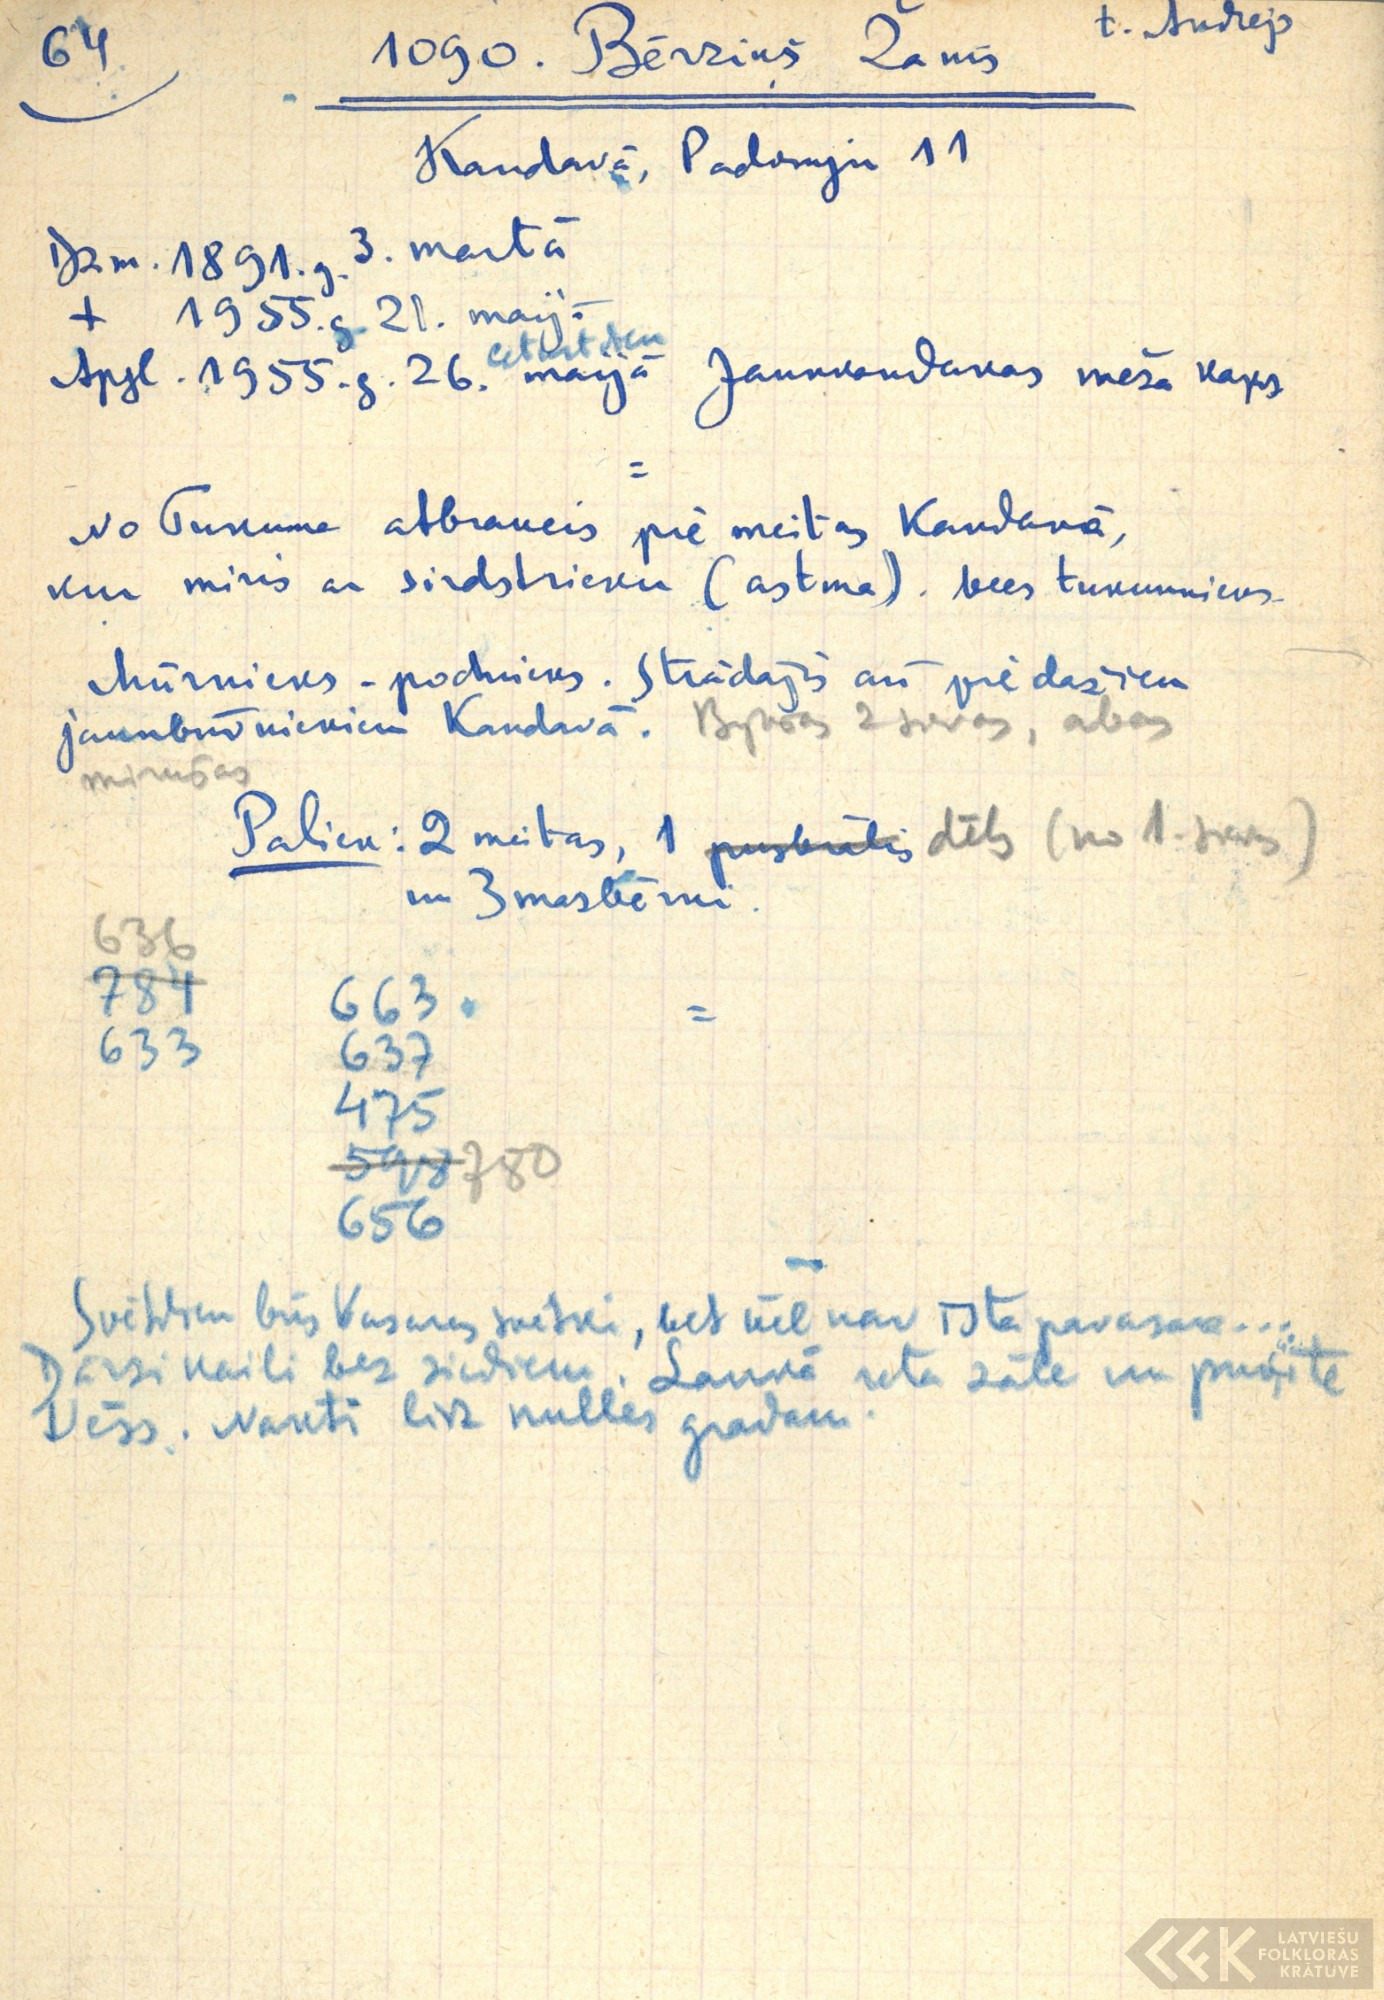 64
1090. Bērziņš Žanis
t. Andrejs
Kandavā, Padomju 11
Dzm. 1891.g. 3. martā
+ 1955.g. 21. maijā
ceturtdien
Apgl. 1955.g. 26. maijā Jaunkandavas meža kaps
=
No Tukuma atbraucis pie meitas Kandavā,
kur miris ar sirdstrieku (astma). Vecs tukumnieks.
Mūrnieks - podnieks. Strādājis arī pie dažiem
jaunbūvniekiem Kandavā. Bijušas 2 sievas, abas
mirušas
Paliek: 2 meitas, 1 pusbrālis dēls (no 1. sievas)
un 3 mazbērni.
636
784
633
663.
637
475
598 780
656
=
Svētdien būs Vasaras svētki, bet vēl nav īsta pavasara...
Dārzi kaili bez ziediem. Laukā reta zāle un
Vēss. Naktī līdz nulles gradam.
LATVIEŠU
FOLKLORAS
KRĀTUVE